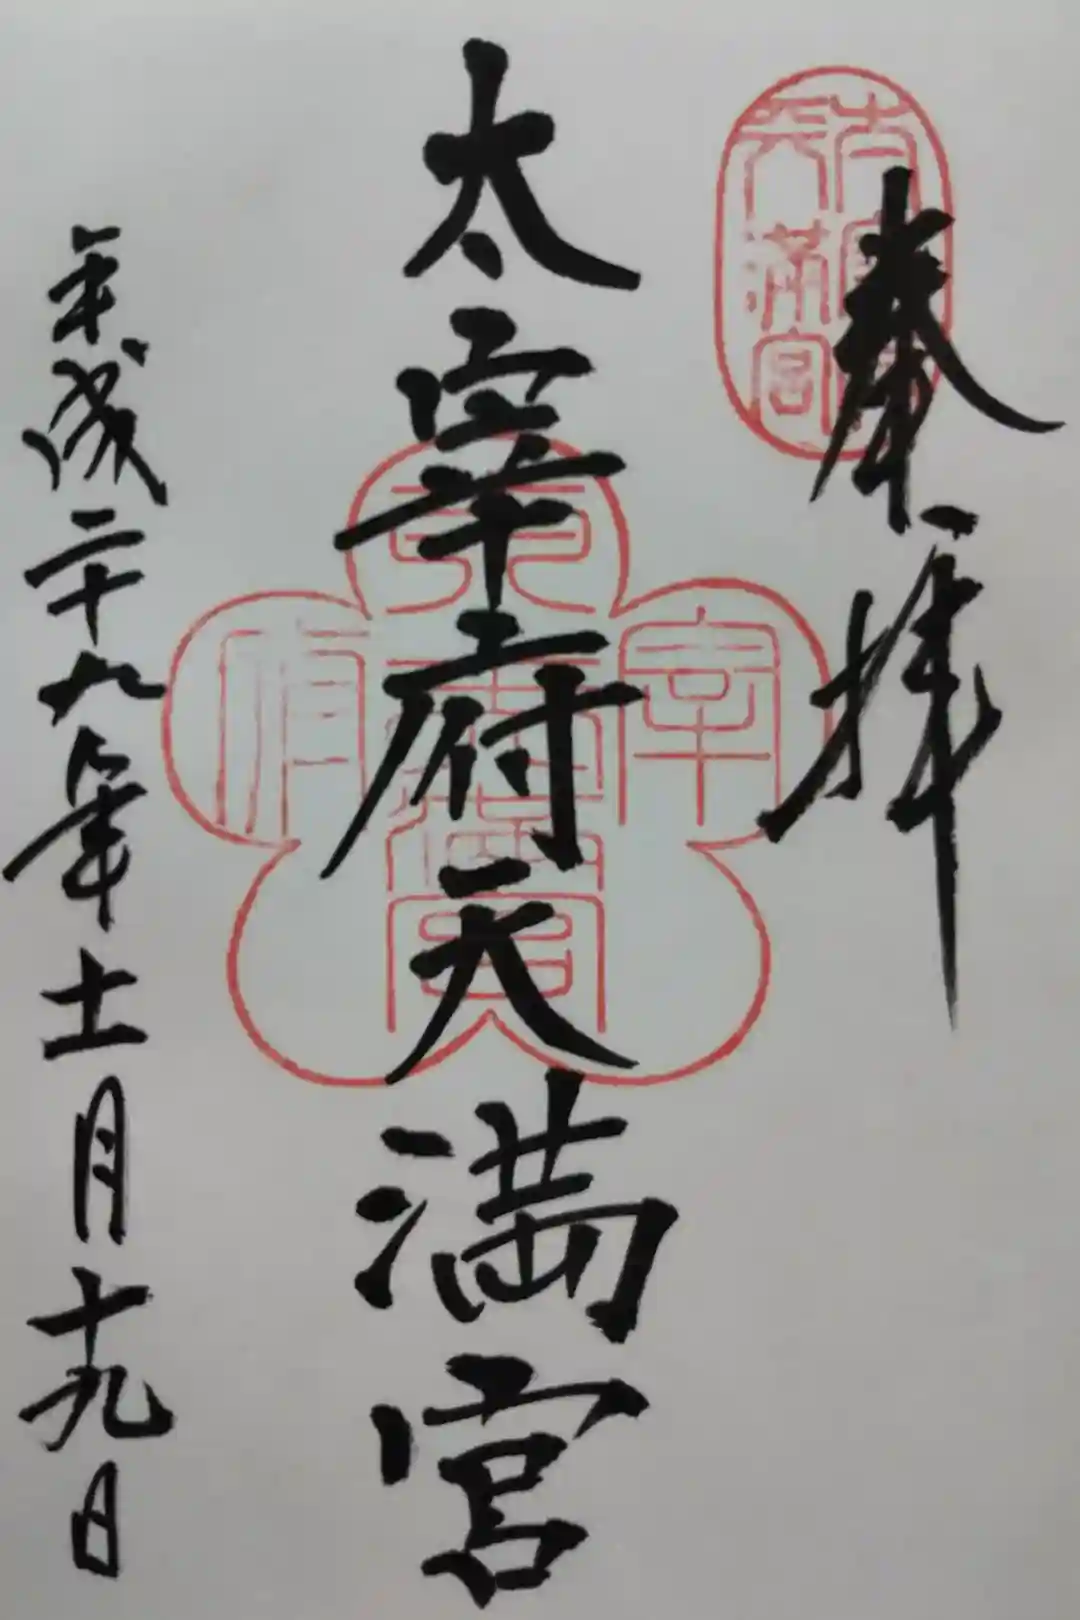 奉拝
太宰府天満宮
平成二十九年十一月十九日